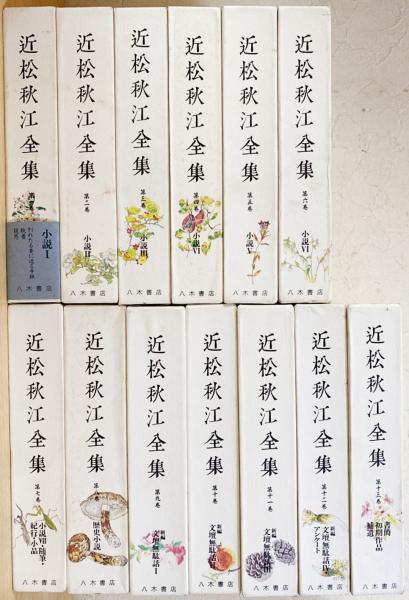 近松秋江全集
小説Ⅰ
別れたる妻に送る手紙
執着
疑惑
八木書店
近松秋江全集
第二巻
小説Ⅱ
八木書店
近松秋江全集
第三巻
小説Ⅲ
八木書店
近松秋江全集
第四巻
小説Ⅵ
八木書店
近松秋江全集
第五巻
小説Ⅴ
八木書店
近松秋江全集
第六巻
小説Ⅵ
八木書店
近松秋江全集
第七巻
小説Ⅶ・随筆・
紀行・小品
八木書店
近松秋江全集
歴史小説
八木書店
近松秋江全集
第九巻
新編
文壇無駄話Ⅰ
八木書店
近松秋江全集
第十巻
新編
文壇無駄話Ⅱ
八木書店
近松秋江全集
第十一巻
新編
文壇無駄話Ⅲ
八木書店
近松秋江全集
第十二巻
新編
文壇無駄話Ⅳ
アンケート
八木書店
近松秋江全集
第十三巻
書簡
初期作品
補遺
八木書店